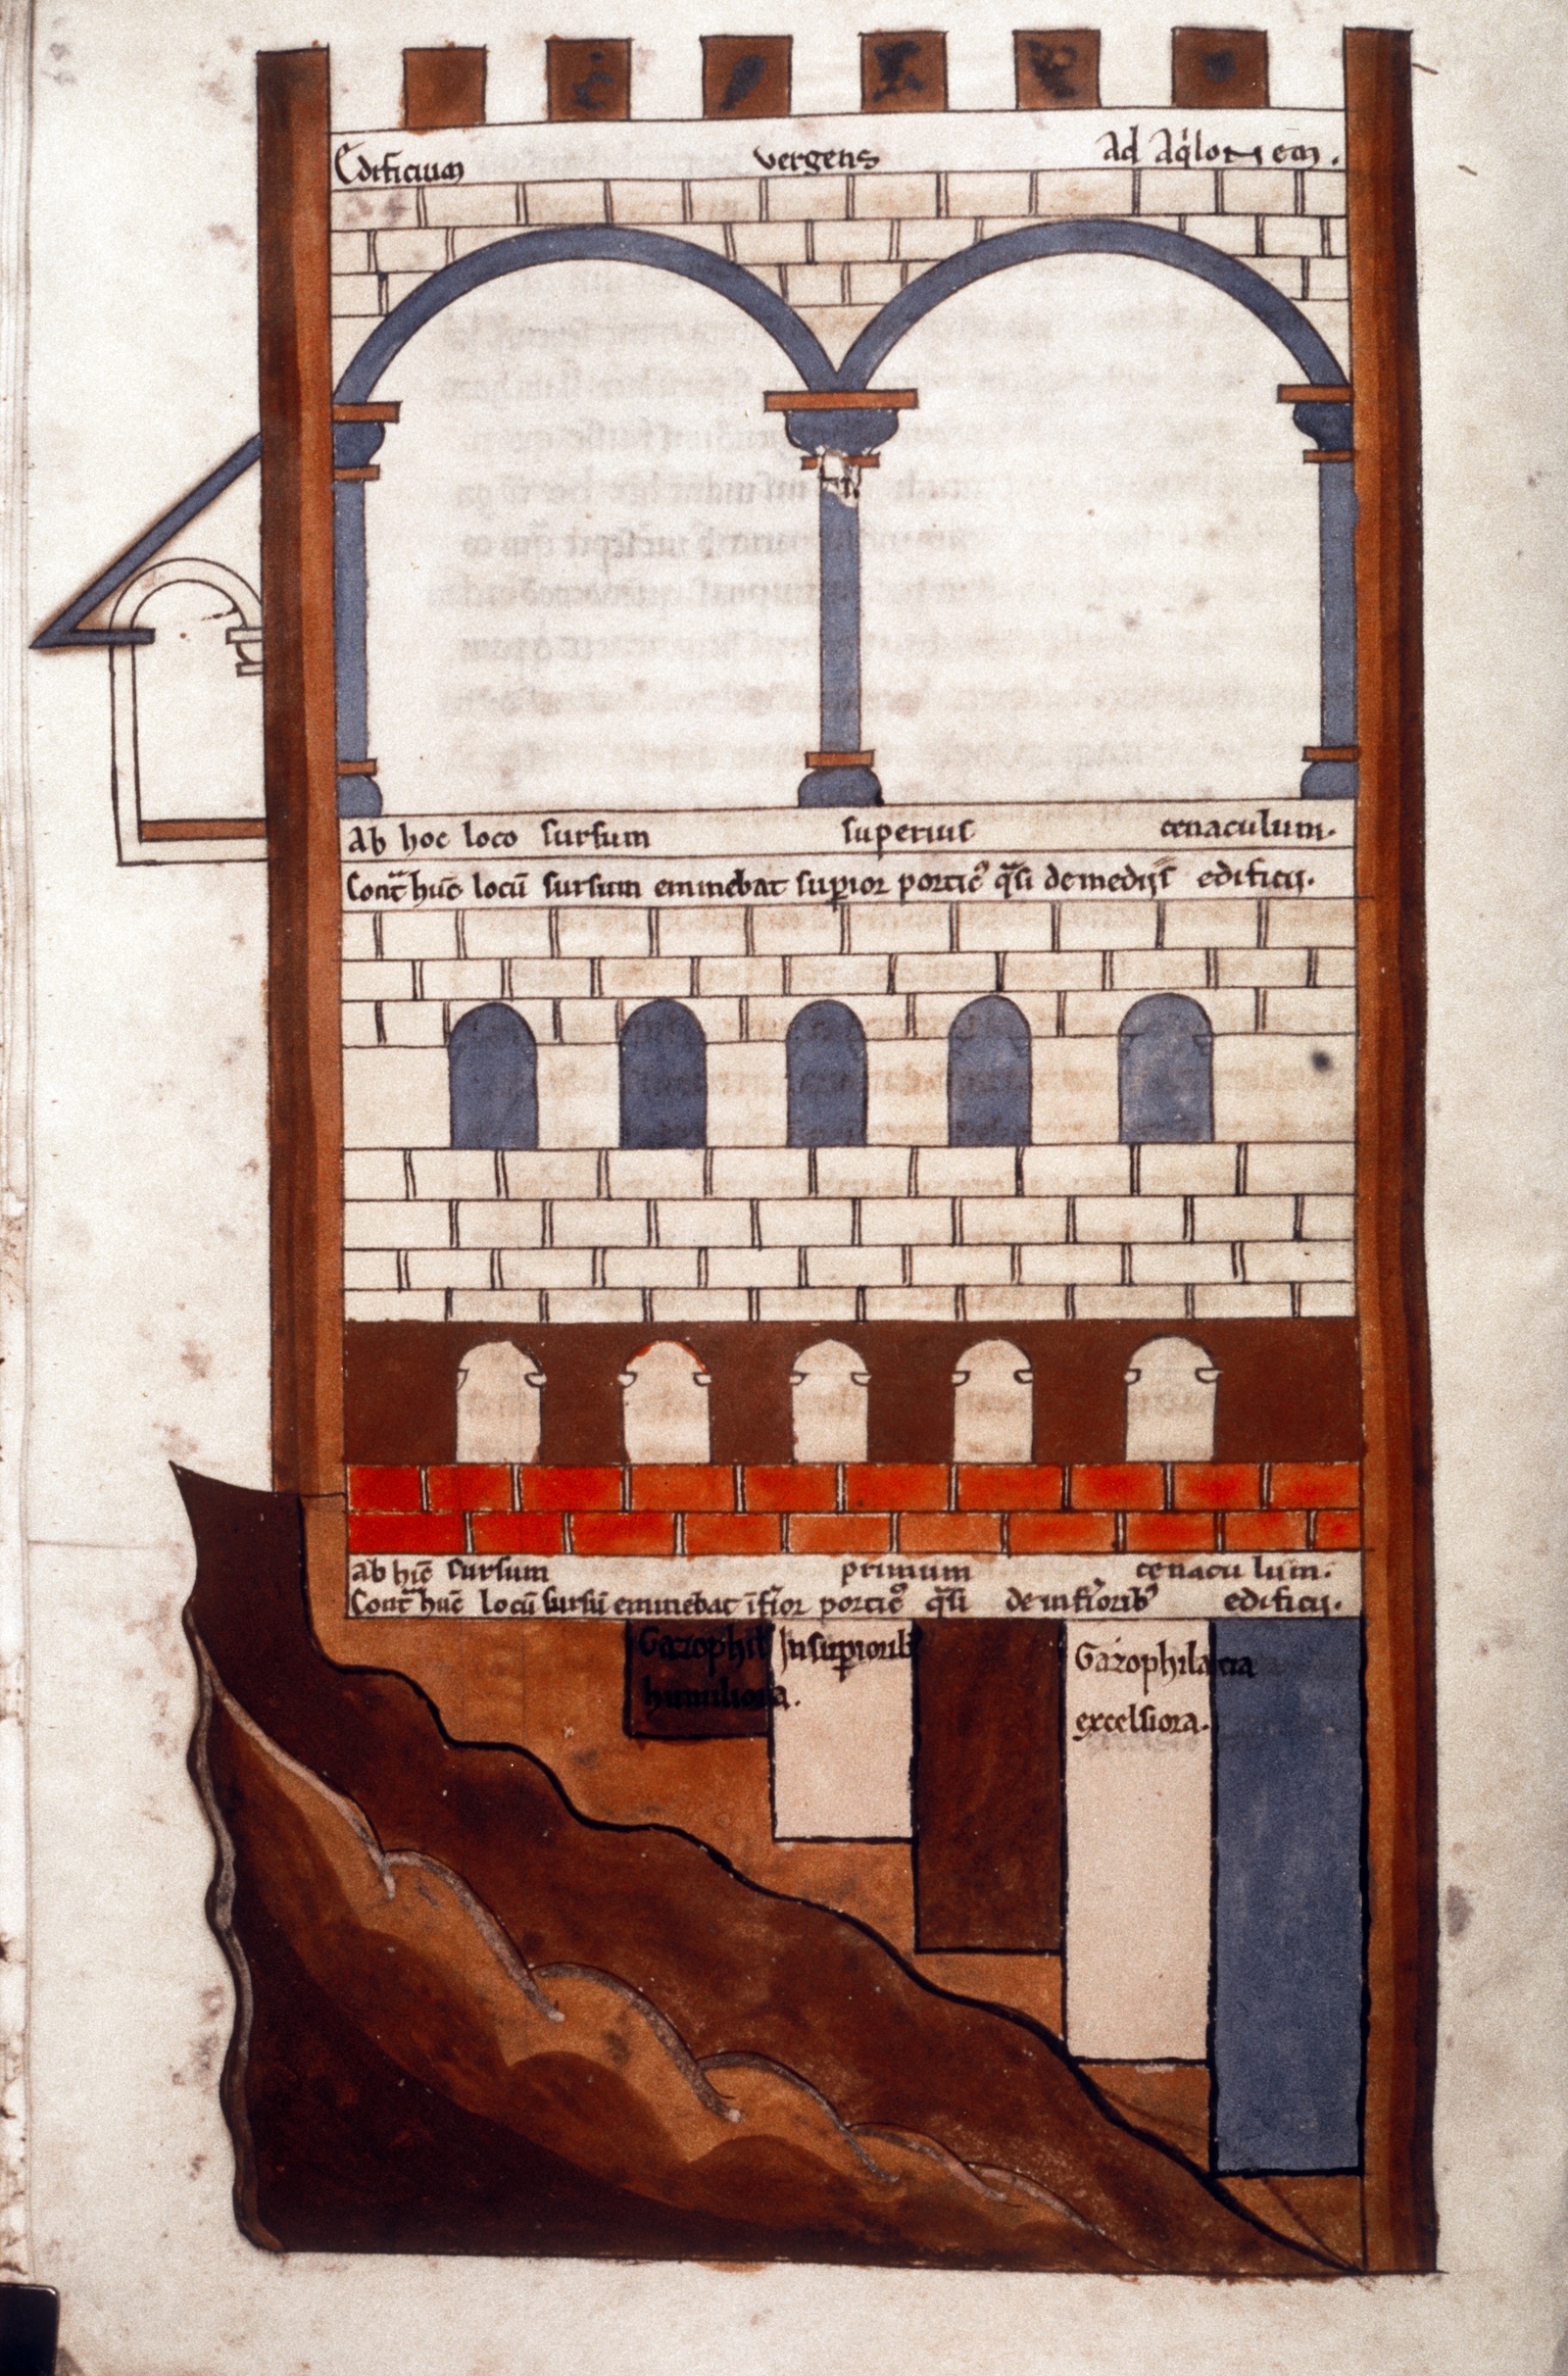 Edificium vergens Ad Aq'lonem.
Ab hoc loco sursum superius cenaculum.
Contᵃ hūc locū sursum eminebat supior porticꝰ qᵃsi de medijs edificij.
ab hīc sursum primum cenaculum.
Contᵃ hūc locū sursū eminebat īfior porticꝰ qᵃsi de infioribꝰ edificij.
Gazophil In supiorib
humiliora.
Gazophilacia
excelsiora.